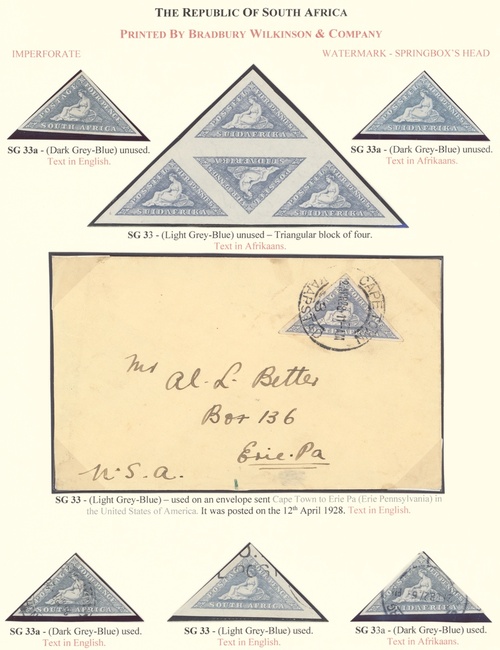 THE REPUBLIC OF SOUTH AFRICA
PRINTED BY BRADBURY WILKINSON & COMPANY
IMPERFORATE
WATERMARK - SPRINGBOX'S HEAD
POSTAGE FOUR PENCE
SOUTH AFRICA
SUIDAFRIKA
SG 33a - (Dark Grey-Blue) unused.
Text in English.
SG 33a - (Dark Grey-Blue) unused.
Text in Afrikaans.
SUIDAFRIKA
SUIDAFRIKA
SUIDAFRIKA
SUIDAFRIKA
SG 33 - (Light Grey-Blue) unused – Triangular block of four.
Text in Afrikaans.
CAPE TOWN
KAAPSTAD
SOUTH AFRICA
Mr
Al. L. Better
Box 136
Erie. Pa
U. S. a.
SG 33 - (Light Grey-Blue) – used on an envelope sent Cape Town to Erie Pa (Erie Pennsylvania) in
the United States of America. It was posted on the 12th April 1928. Text in English.
SOUTH AFRICA
SOUTH AFRICA
SUIDAFRIKA
SG 33a - (Dark Grey-Blue) used.
Text in English.
SG 33 - (Light Grey-Blue) used.
Text in English.
SG 33a - (Dark Grey-Blue) used.
Text in Afrikaans.